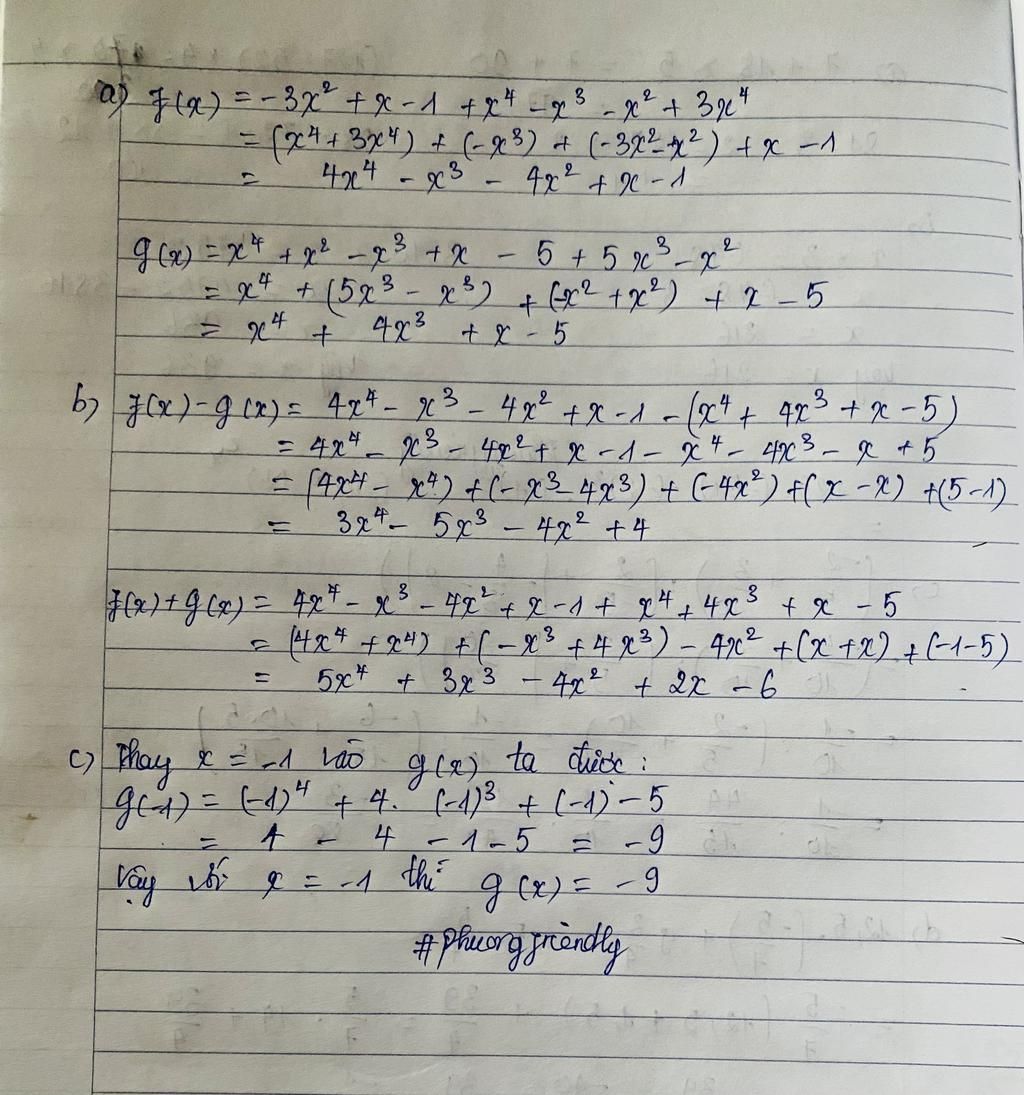 a) f(x) = -3x² + x - 1 + x⁴ - x³ - x² + 3x⁴
= (x⁴ + 3x⁴) + (-x³) + (-3x² - x²) + x - 1
= 4x⁴ - x³ - 4x² + x - 1
g(x) = x⁴ + x² - x³ + x - 5 + 5x³ - x²
= x⁴ + (5x³ - x³) + (-x² + x²) + x - 5
= x⁴ + 4x³ + x - 5
b) f(x) - g(x) = 4x⁴ - x³ - 4x² + x - 1 - (x⁴ + 4x³ + x - 5)
= 4x⁴ - x³ - 4x² + x - 1 - x⁴ - 4x³ - x + 5
= (4x⁴ - x⁴) + (-x³ - 4x³) + (-4x²) + (x - x) + (5 - 1)
= 3x⁴ - 5x³ - 4x² + 4
f(x) + g(x) = 4x⁴ - x³ - 4x² + x - 1 + x⁴ + 4x³ + x - 5
= (4x⁴ + x⁴) + (-x³ + 4x³) - 4x² + (x + x) + (-1 - 5)
= 5x⁴ + 3x³ - 4x² + 2x - 6
c) Thay x = -1 vào g(x) ta được :
g(-1) = (-1)⁴ + 4. (-1)³ + (-1) - 5
= 1 - 4 - 1 - 5 = -9
Vậy với x = -1 thì g(x) = -9
#phuongfriendly